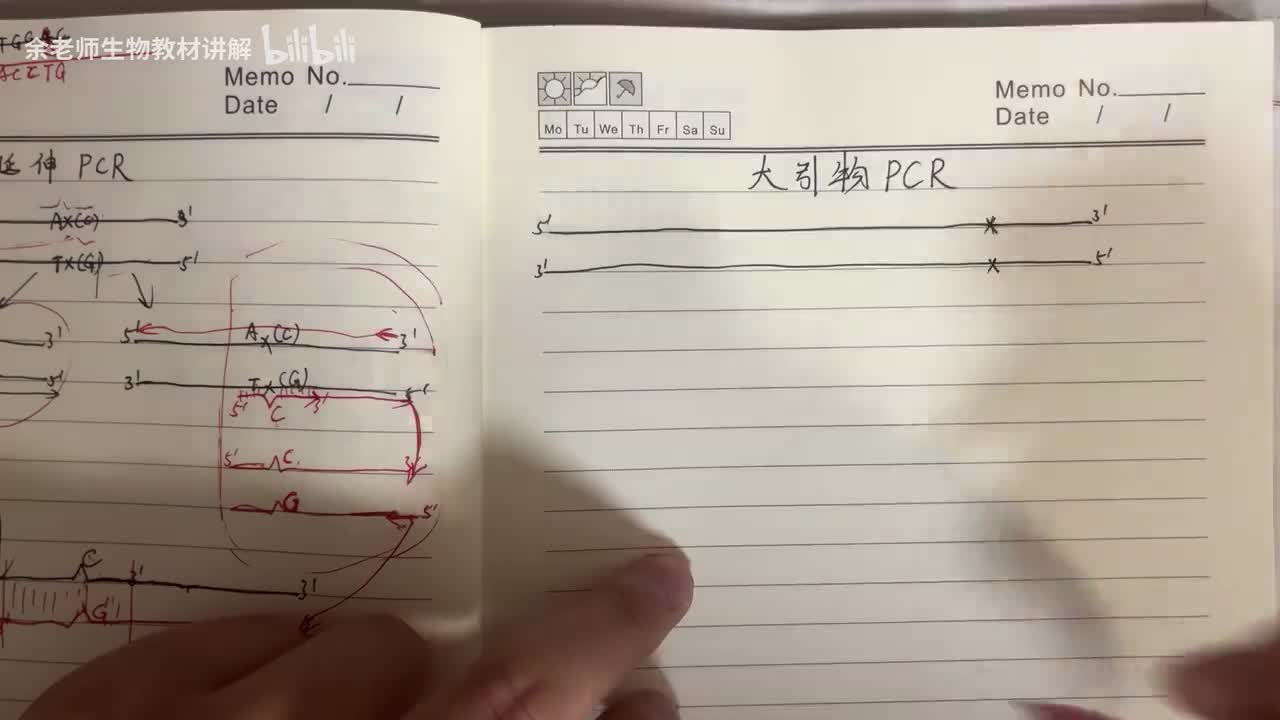 余老师生物教材讲解 bilibili
Memo No.
Date / /
延伸 PCR
A×(C) 3'
T×(G) 5'
3' 5' A×(C) 3'
5' 3' T×(G) 5'
5' C 3'
5' C 3'
G 5'
C 3' 3'
G
Mo Tu We Th Fr Sa Su
Memo No.
Date / /
大引物 PCR
5' × 3'
3' × 5'